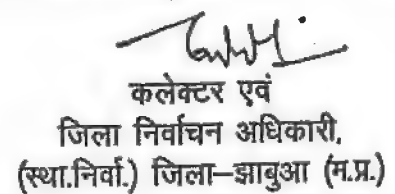 कलेक्टर एवं
जिला निर्वाचन अधिकारी,
(स्था.निर्वा.) जिला–झाबुआ (म.प्र.)